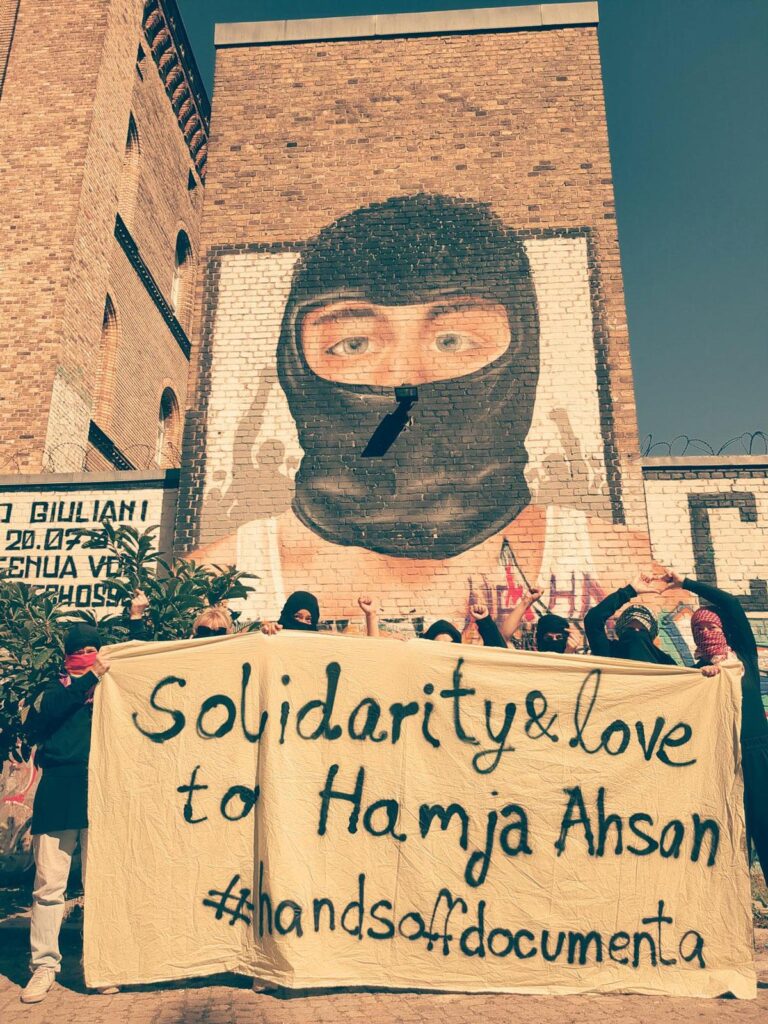 GIULIANI
20.07
Solidarity & love
to Hamja Ahsan
#handsoffdocumenta